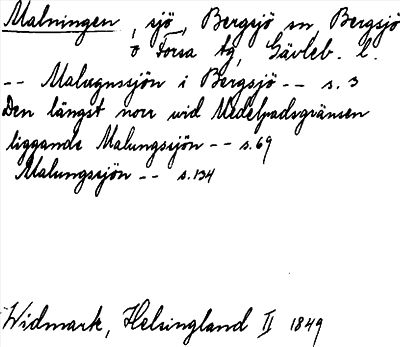 Malningen, sjö, Bergsjö sn, Bergsjö
o Forsa tg, Gävleb. l.
-- Malugnssjön i Bergsjö -- s. 3
Den längst norr vid Medelpadsgränsen
liggande Malungssjön -- s. 69
Malungssjön -- s. 134
Widmark, Helsingland II 1849